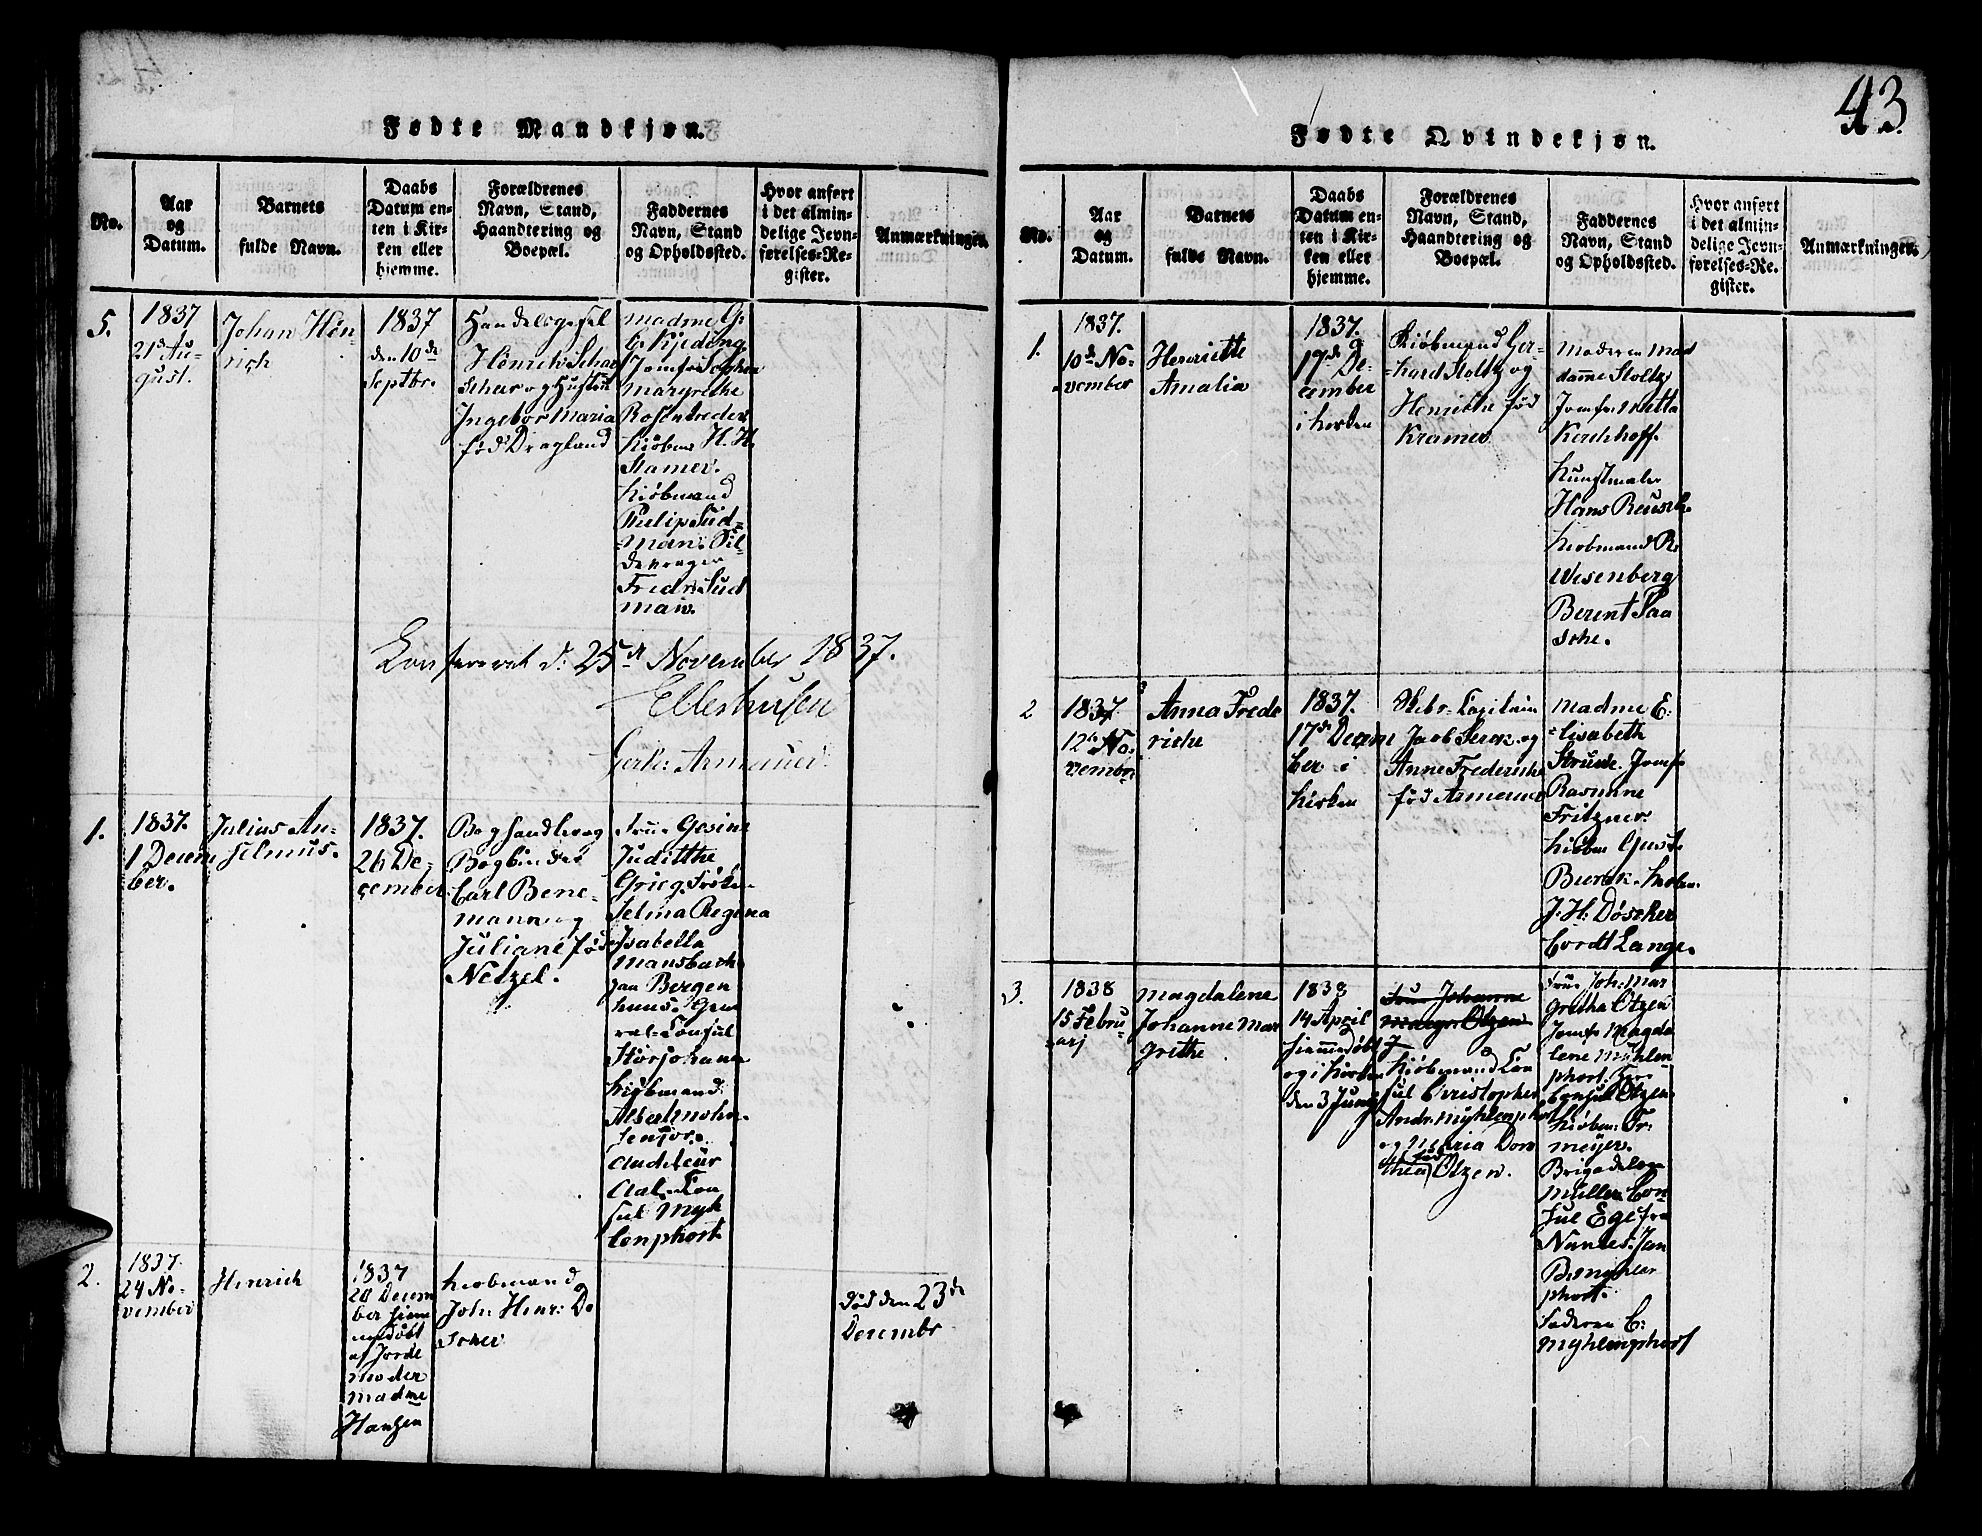 43
Fødte Mandkjøn.
No.
Aar
og
Datum.
Barnets
fulde Navn.
Daabs
Datum en-
ten i Kir-
ken eller
hjemme.
Forældrenes
Navn, Stand,
Haandtering og
Boepæl.
Faddernes
Navn, Stand
og Opholdssted.
Hvor anført
i det almin-
delige Jevn-
førelses-Re-
gister.
Anmærkninger.
5.
1837
21de Au-
gust.
Johan Hen-
rich
1837
den 10de
Septbr.
Handelsgesel
Henrich Schar
og Hustru
Ingebor Maria
fød Dragland
madme G:
Jomfr Sophia
margrethe
Rosentreder
Kiøbm H. H.
Stamer.
Kiøbmand
Philip Sud-
man.
Fredr. Sud
man.
Confereret d: 25de November 1837.
Ellerhusen
Gerh: Armauer.
1.
1837.
1 Decem
ber.
Julius An-
selmus.
1837.
26 De-
cember
Boghandler og
Bogbinder
Carl Bene-
mann og
Juliane fød
Netzel.
Frue Gesine
Judithe
Grieg. Frøken
Selma Regina
Isabella
Mansbach
Jan Bergen
huus. Gene
ral Consul
Størjohann
Kiøbmand
Albert Mohn
Senior.
Auditeur
Aal. Con
sul Myh
lenphort
2.
1837.
24 No-
vember
Henrich
1837
20 Decem
ber hiem
medøbt
af Jorde
moder
madme
Hansen
Kiøbmand
Joh: Henr: Dø
scher
død den 23de
Decembr
Fødte Qvindekjøn.
No.
Aar
og
Datum.
Barnets
fulde Navn.
Daabs
Datum en-
ten i Kir-
ken eller
hjemme.
Forældrenes
Navn, Stand,
Haandtering og
Boepæl.
Faddernes
Navn, Stand
og Opholdssted.
Hvor anført
i det almin-
delige Jevn-
førelses-Re-
gister.
Anmærkninger.
1.
1837.
10de No-
vember
Henriette
Amalia
1837.
17de De-
cember
i kirken
Kiøbmand Ger-
hard Stoltz og
Henriette fød
Kramer
Moderen Mad
dame Stoltz
Jomfr. Metta
Kerckhoff.
Kunstmaler
Hans Reusch.
Kiøbmand R.
Wesenberg
Berent Paa
sche.
2
1837.
12te No-
vembr
Anna Frede
riche
1837.
17de Decem
ber i
kirken
Skibs Capitain
Jacob Serck og
Anne Frederiche
fød Armauer
Madme E-
lisabeth
Struck. Jomfr
Rasmine
Fritzner.
Kiøbm Gust.
Burck. Kiøbm.
J. H: Døscher
Cordt Lange.
3.
1838
15 Febru
arj
Magdalene
Johanne Mar
grethe
1838
14 April
hiemmedøbt
og i Kirken
den 3 Junj
Frue Johanne
Margr. Otzen
Kiøbmand Con
sul Christopher
Andr. Myhlenphort
og Maria Doro
thea fød Otzen.
Frue Joh: Mar
gretha Otzen
Jomfr Magda
lene Myhlen-
phort.
Consul Otzen.
Kiøbm: Fr:
Meijer.
Müller. Con-
sul Ege fra
Nantes. Jan
Myhlen
phort.
Faderen C:
Myhlenphort